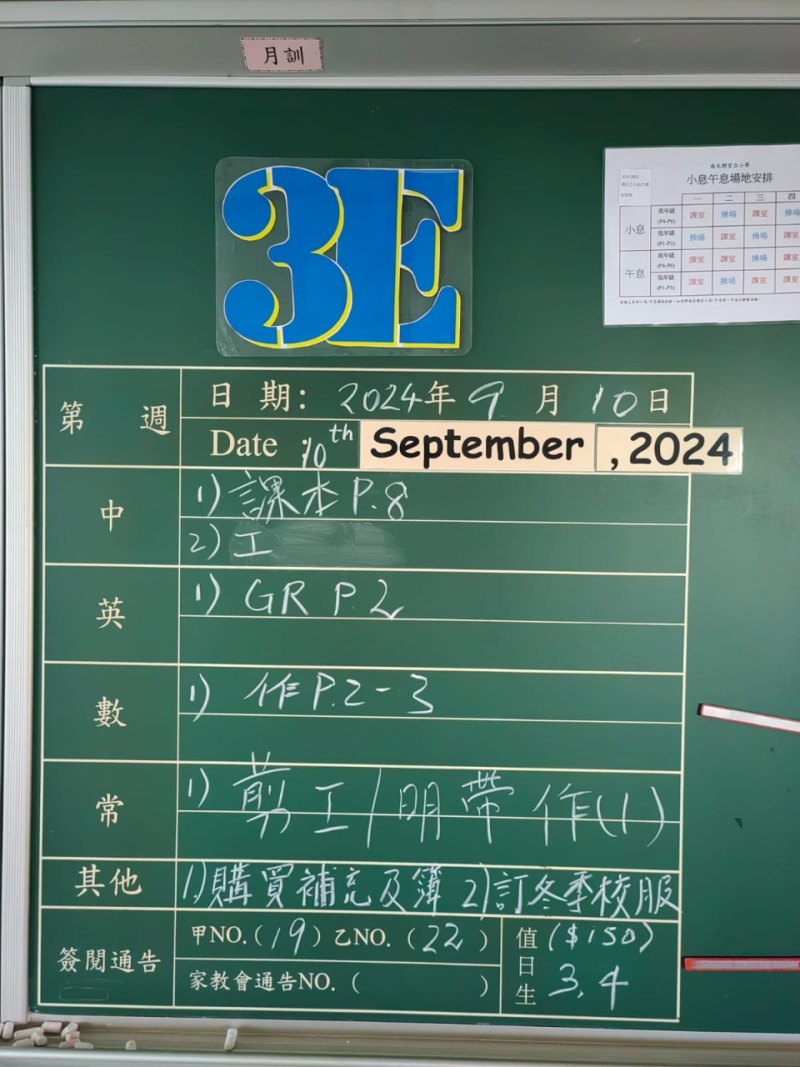 月訓
3E
小息午息場地安排
一 二 三 四
小息 高年級 (P4-P6) 課室 操場 課室 操場
低年級 (P1-P3) 操場 課室 操場 課室
午息 高年級 (P4-P6) 課室 課室 操場 課室
低年級 (P1-P3) 課室 操場 課室 課室
第 週 日 期: 2024年 9 月 10日
Date : 10th September , 2024
中 1) 課本 P.8
2) 工
英 1) GR P.2
數 1) 作P.2-3
常 1) 剪工/明帶 作(1)
其他 1)購買補充及簿 2)訂冬季校服
簽閱通告 甲NO.(19) 乙NO.(22) 值日生 ($150)
家教會通告NO.( ) 3,4